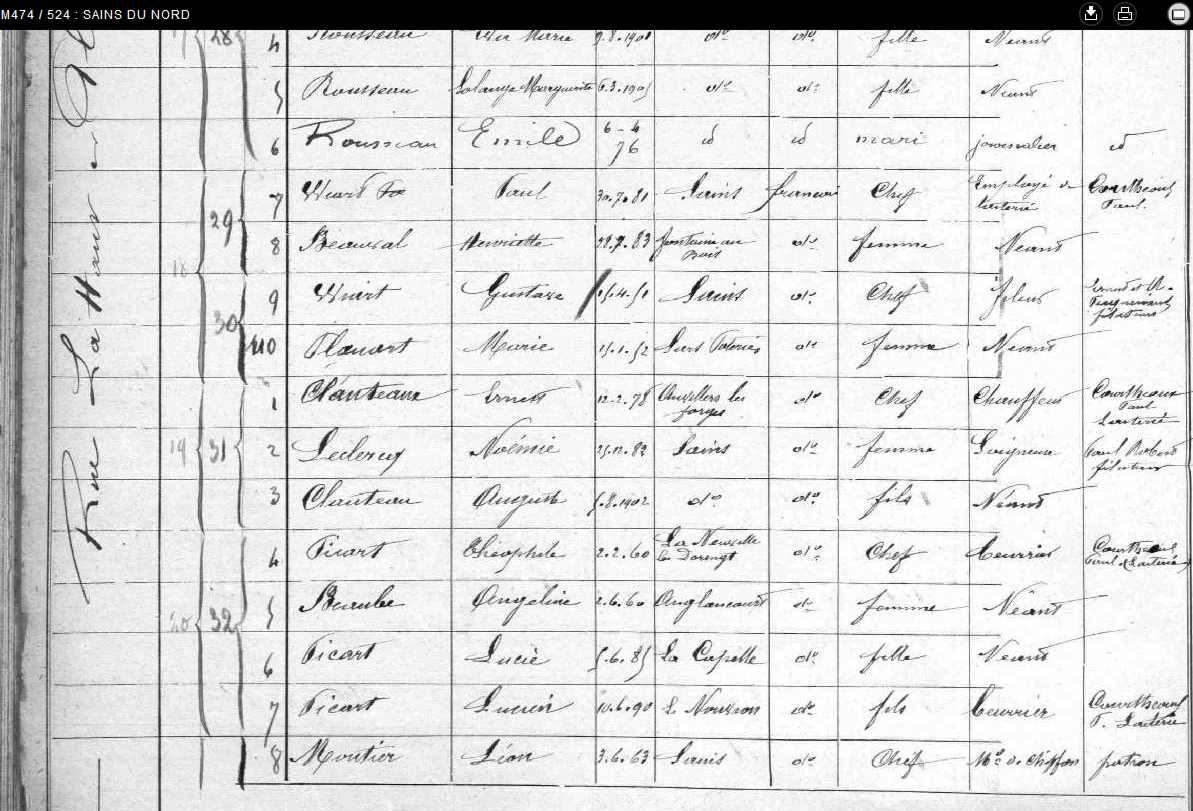 M474 / 524 : SAINS DU NORD
28 4 Rousseau Marie 9.8.1901 do do fille Néant
5 Rousseau Solange Marguerite 6.3.1905 do do fille Néant
6 Rousseau Emile 6-4 76 id id mari journalier id
Rue La Haut
29 7 Wiart Paul 30.7.81 Sains français Chef Employé de laiterie Courtheoux Paul
18 8 Beauval Henriette 28.7.83 Fontaine au Bois do femme Néant
9 Wiart Gustave 15.4.51 Sains do Chef fileur
30 10 Planart Marie 15.1.52 Sars Poteries do femme Néant
1 Clauteaux Ernest 12-2.78 Auvillers les forges do Chef Chauffeur Courtheoux Paul Laiterie
19 31 2 Leclercq Noémie 25.12.82 Sains do femme Soigneuse Paul Robert filateur
3 Clauteau August 5.8.1902 do do fils Néant
4 Picart Théophile 2.2.60 La Neuville les Dorengt do Chef beurrier Courtheoux Paul Laiterie
20 32 5 Angeline 2.6.60 Anglancourt do femme Néant
6 Picart Lucie 5.6.85 La Capelle do fille Néant
7 Picart Lucien 10.6.90 Le Nouvion do fils beurrier Courtheoux P. Laiterie
8 Moutier Léon 3.6.63 Sains do Chef Md de Chiffons patron